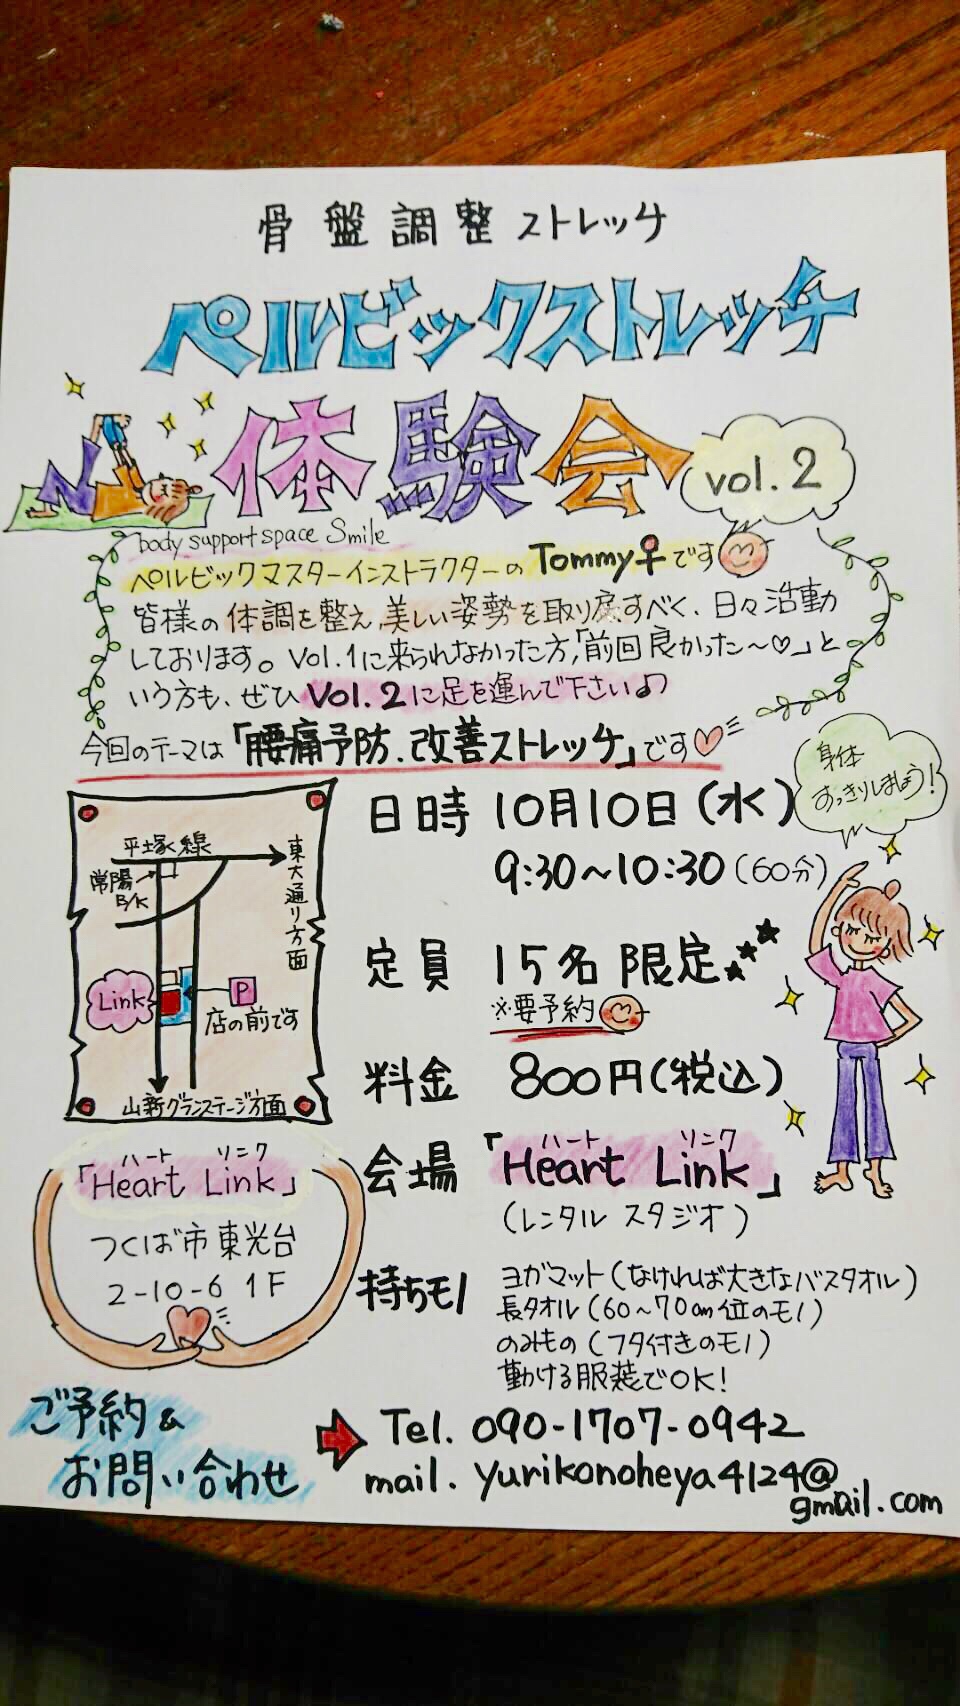 骨盤調整ストレッチ
ペルビックストレッチ
体験会
vol.2
body support space Smile
ペルビックマスターインストラクターのTommy♀です
皆様の体調を整え、美しい姿勢を取り戻すべく、日々活動
しております。Vol.1に来られなかった方、「前回良かった〜♡」と
いう方も、ぜひVol.2に足を運んで下さい♪
今回のテーマは「腰痛予防、改善ストレッチ」です♡
身体
すっきりしましょう!
日時 10月10日(水)
9:30~10:30(60分)
定員 15名限定★★★
※要予約
料金 800円(税込)
会場 「Heart Link」
ハート リンク
(レンタルスタジオ)
持ちモノ ヨガマット(なければ大きなバスタオル)
長タオル(60~70cm位のモノ)
のみもの(フタ付きのモノ)
動ける服装でOK!
平塚線
常陽
B/K
東大通り方面
Link
P
店の前です
山新グランステージ方面
ハート リンク
「Heart Link」
つくば市東光台
2-10-6 1F
ご予約&
お問い合わせ
Tel. 090-1707-0942
mail. yurikonoheya4124@
gmail.com